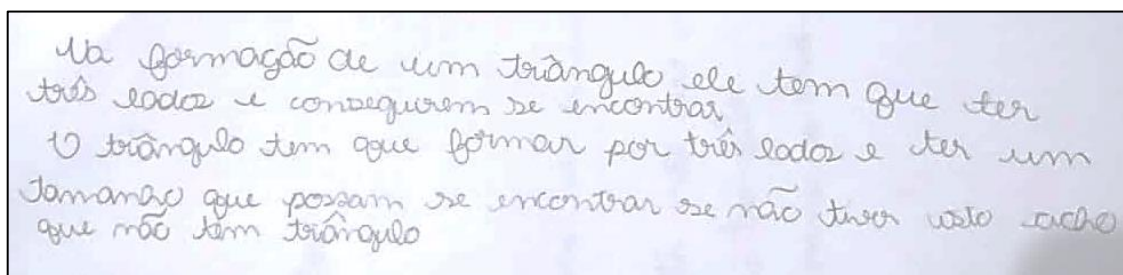 Na formação de um triângulo ele tem que ter
três lados e conseguirem se encontrar
O triângulo tem que formar por três lados e ter um
tamanho que possam se encontrar se não tiver isto acho
que não tem triângulo